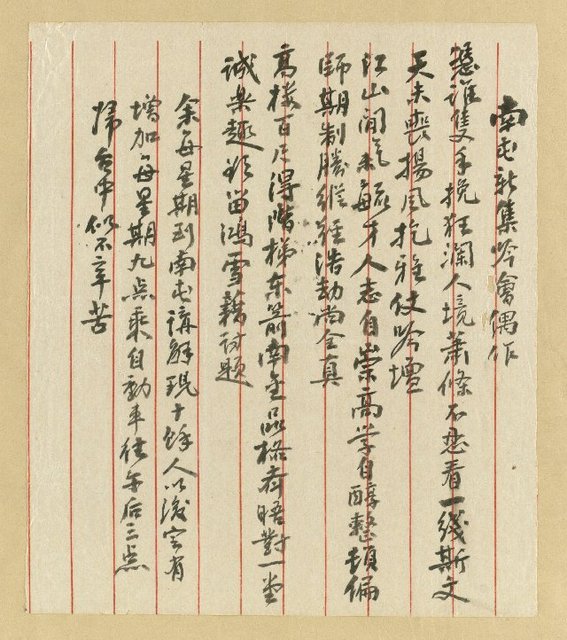 南屯新集吟會偶作
憑誰隻手挽狂瀾人境蕭條不忍看一綫斯文
天未喪揚風扢雅仗吟壇
江山閒氣毓才人志自崇高学自醇整頓偏
師期制勝縱經浩劫尚全真
高楼百尺得階梯东箭南金品格齐晤對一堂
誠樂趣欲留鴻雪藉詩题
余每星期到南屯講解現十餘人以後定有
增加每星期九点乘自動車往午后三点
歸台中似不辛苦